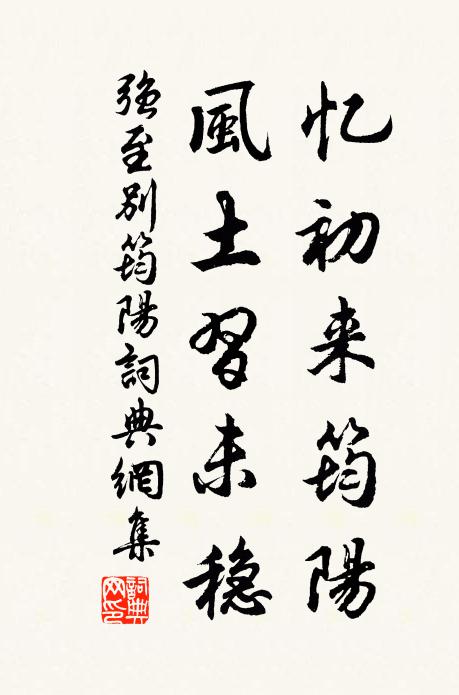 忆初来筠陽
風土習未穏
強至別筠陽詞典網集
詞典网印